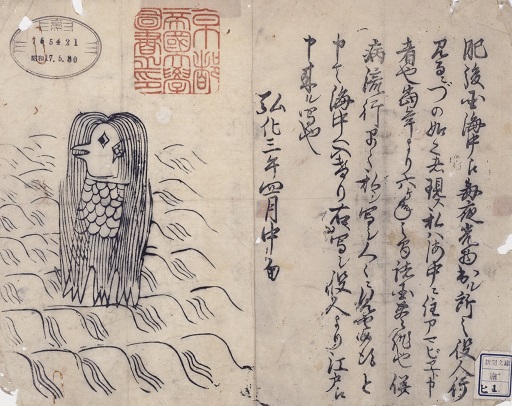 肥後国海中え毎夜光物出ル所之役人行
見るニづの如く者現ス私ハ海中ニ住アマビヱト申
者也當年より六ヶ年之間諸国豊作也併
病流行早々私ヲ写シ人々ニ見セ候得と
申て海中へ入けり右写シ役人より江戸え
申来ル写也
弘化三年四月中旬
京都
帝國大學
圖書之印
765421
昭和17.5.30
新聞文庫